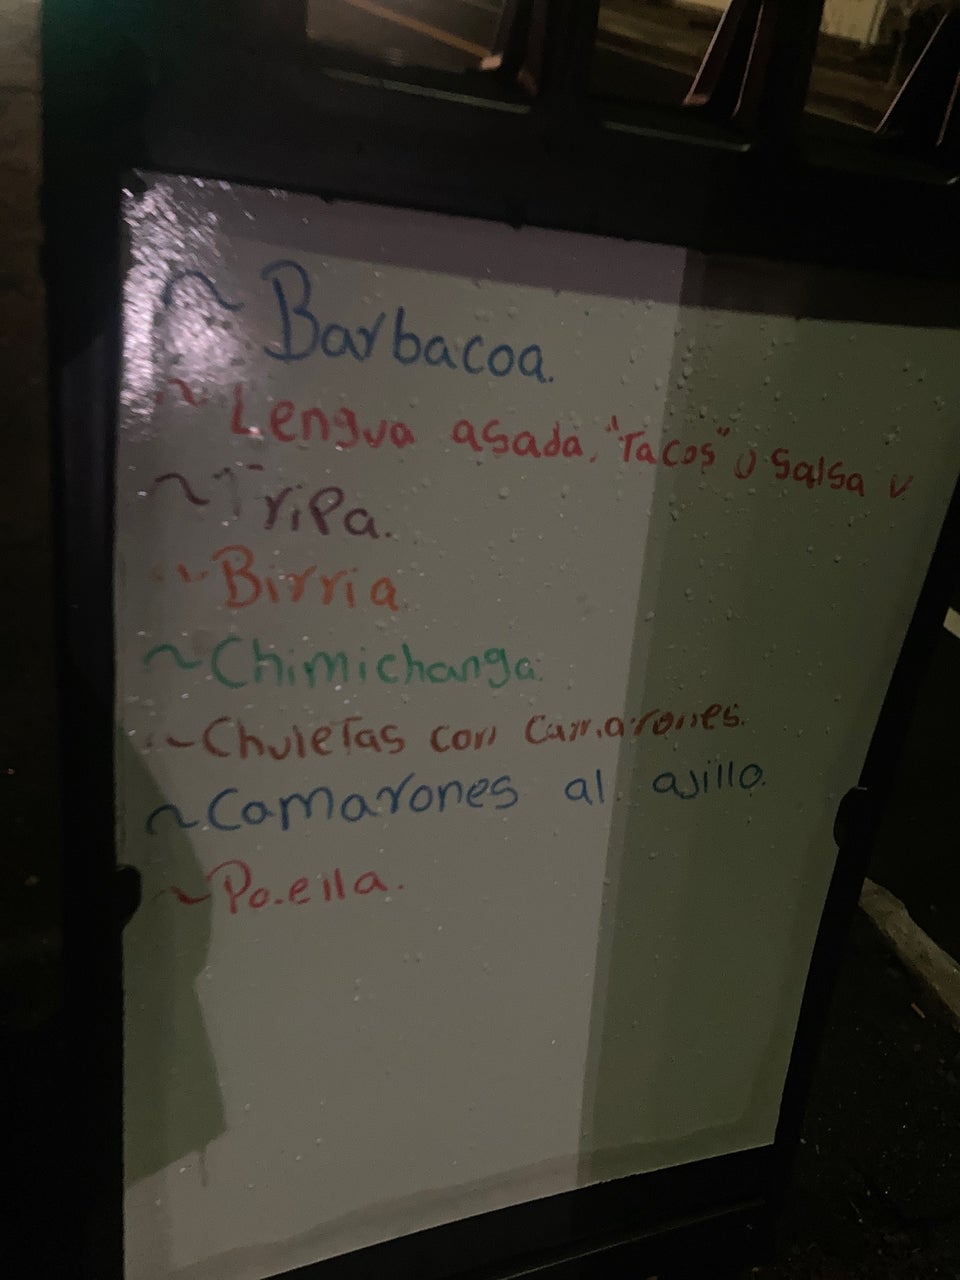 ~ Barbacoa.
~ Lengua asada, "Tacos" o Salsa v
~ Tripa.
~ Birria
~ Chimichanga.
~ Chuletas con Camarones.
~ Camarones al ajillo.
~ Paella.